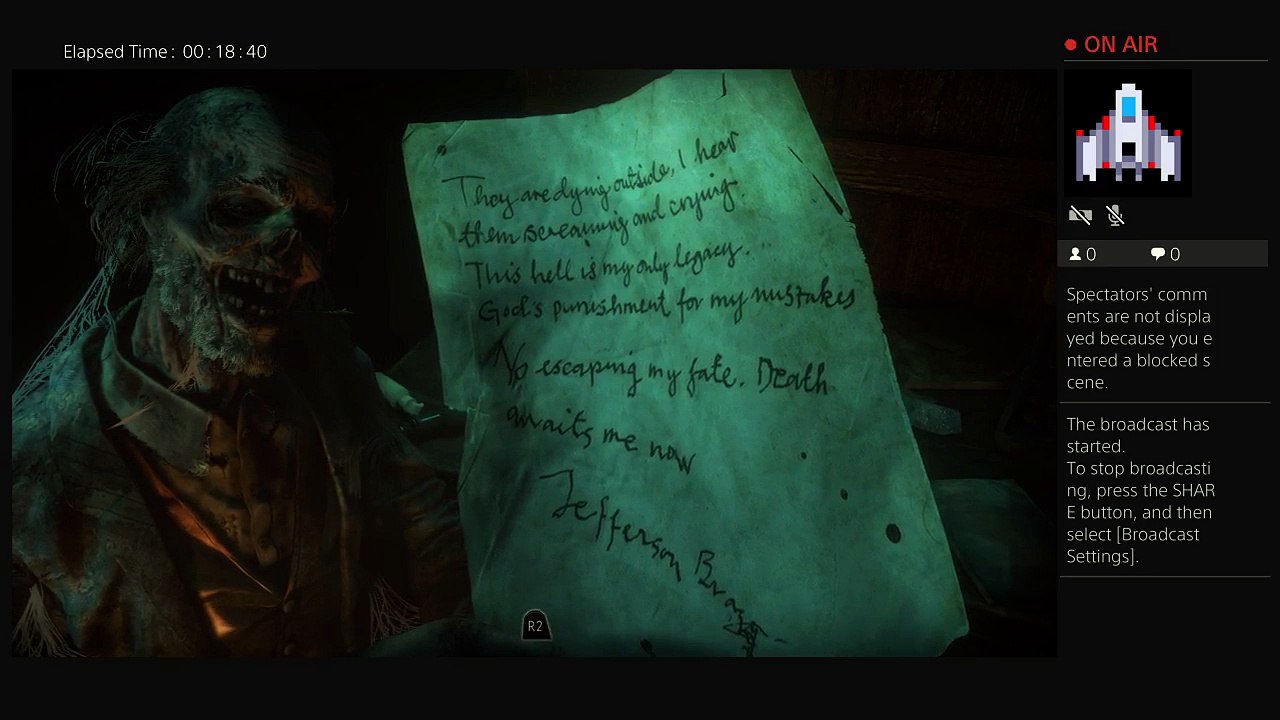 Elapsed Time: 00:18:40
ON AIR
0 0
Spectators' comm
ents are not displa
yed because you e
ntered a blocked s
cene.
The broadcast has
started.
To stop broadcasti
ng, press the SHAR
E button, and then
select [Broadcast
Settings].
They are dying outside, I hear
them screaming and crying.
This hell is my only legacy...
God's punishment for my mistakes
No escaping my fate. Death
awaits me now
Jefferson
R2